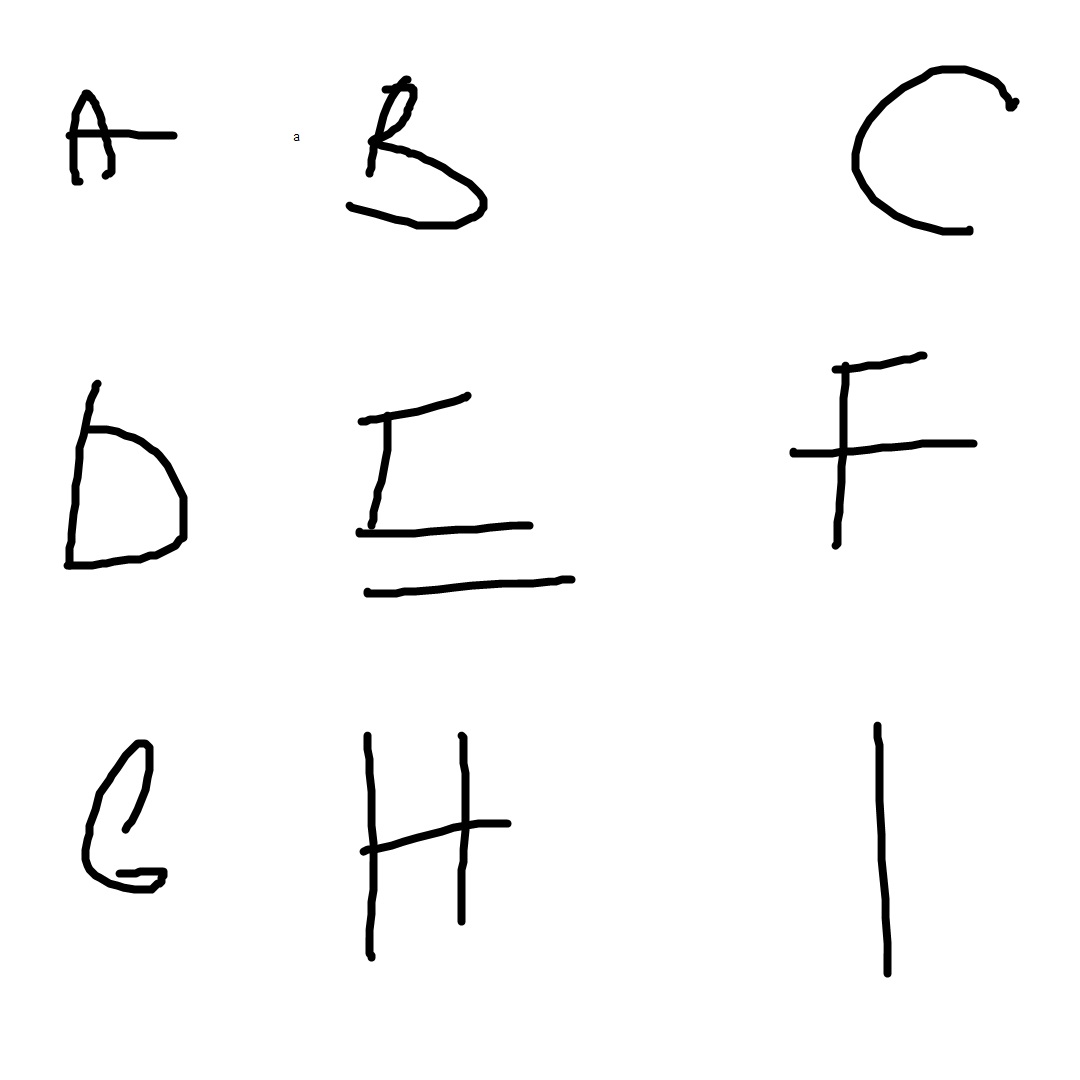 A a B C
D E F
G H I